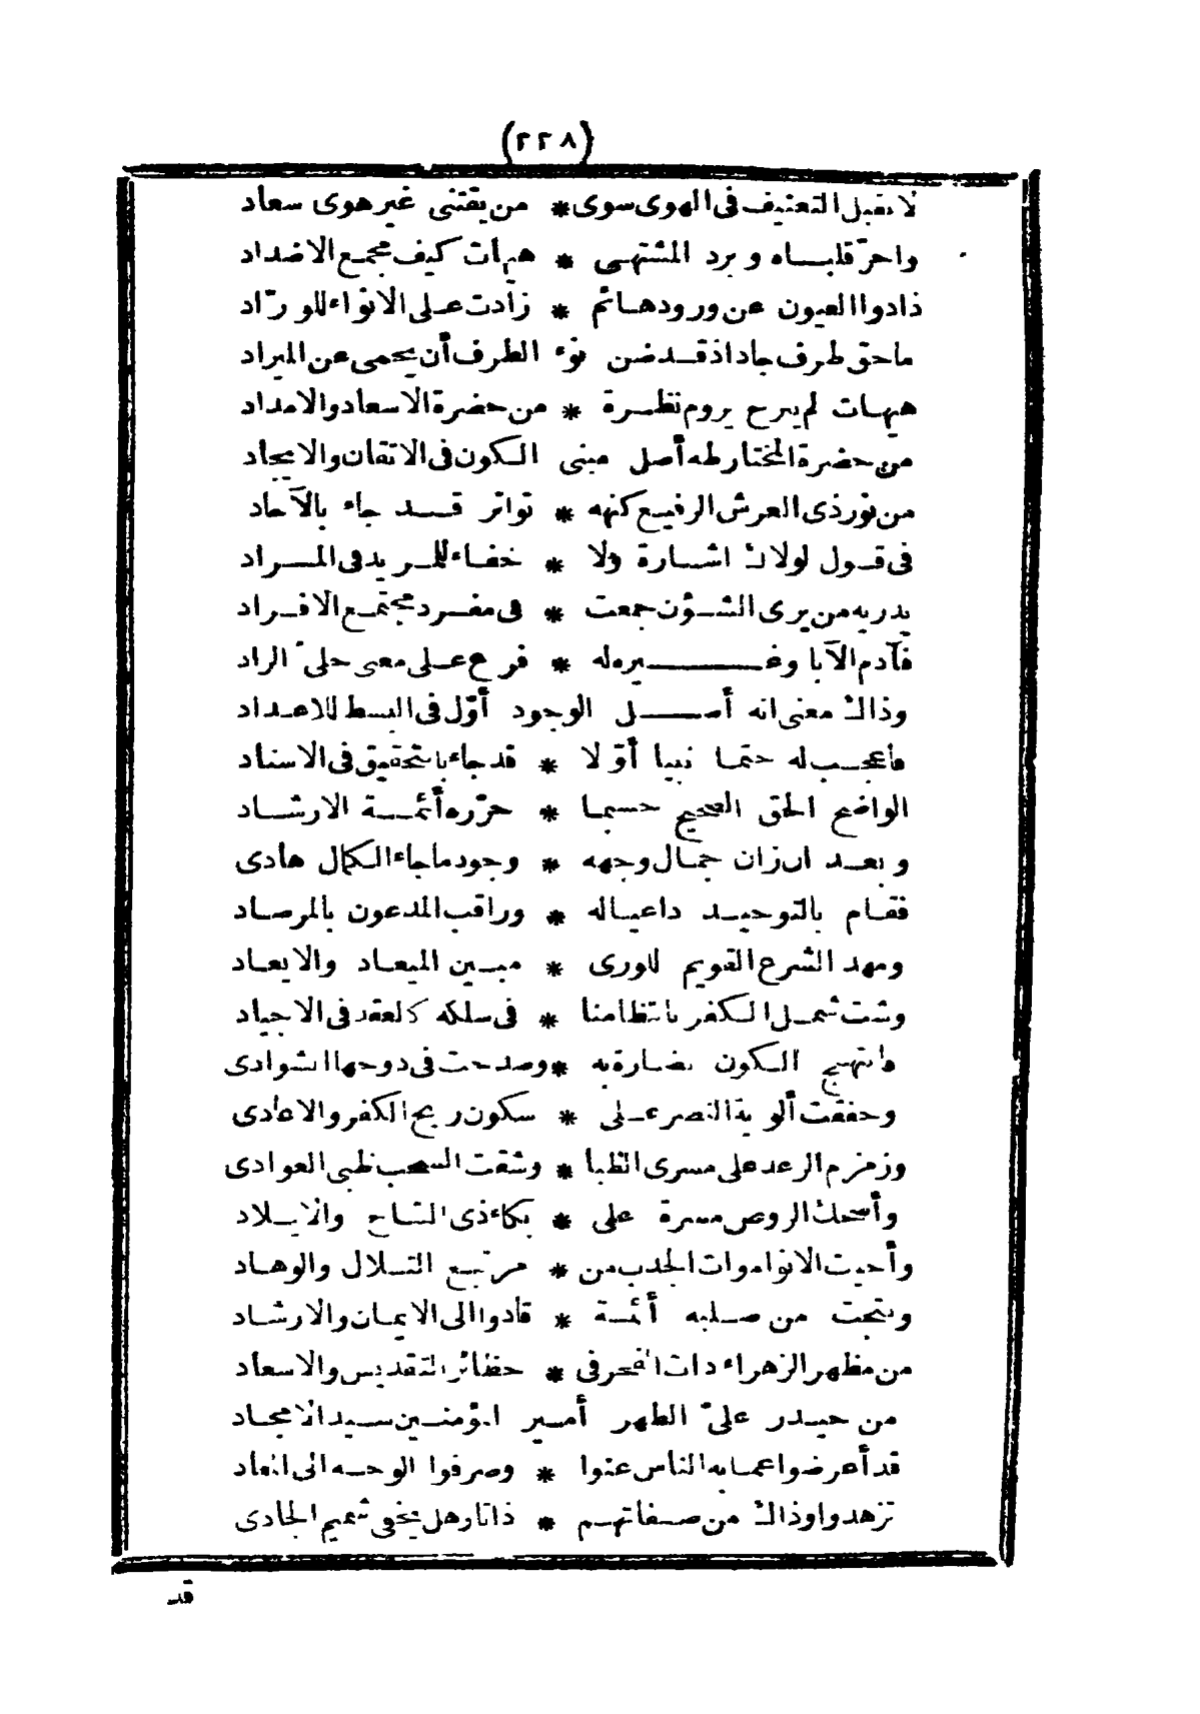 (٢٢٨)
لا يقبل التعنيف فى الهوى سوى * من يقتنى غير هوى سعاد
واحرّ قلباه وبرد المشتهى * هيهات كيف مجمع الاضداد
ذادوا العيون عن ورودهائم * زادت على الانواء للورّاد
ماحق طرف جاد اذ قد ضن نوء الطرف أن يحمى عن الميراد
هيهات لم يبرح يروم نظرة * من حضرة الاسعاد والامداد
من حضرة المختار طه أصل مبنى الكون فى الاتقان والايجاد
من نور ذى العرش الرفيع كنهه * تواتر قد جاء بالآحاد
فى قول لولاك اشارة ولا * خفاء للمريد فى المراد
يدريه من يرى الشؤن جمعت * فى مفرد مجتمع الافراد
فآدم الآبا وغيره له * فرع على معنى جلىّ الراد
وذاك معنى انه أصل الوجود أوّل فى البسط للاعداد
فاعجب له حتما نبيا أوّلا * قد جاء بالتحقيق فى الاسناد
الواضح الحق الصحيح حسبما * حرّره أئمة الارشاد
وبعد ان زان جمال وجهه * وجود ما جاء الكمال هادى
فقام بالتوحيد داعيا له * وراقب المدعون بالمرصاد
ومهد الشرع القويم للورى * مبين الميعاد والايعاد
وشت شمل الكفر بانتظامنا * فى سلكه كالعقد فى الاجياد
فابتهج الكون نضارة به * وصدحت فى دوحها الشوادى
وخفقت ألوية النصر على * سكون ريح الكفر والاعادى
وزمزم الرعد على مسرى الظبا * وشقت السحب ظبى العوادى
وأضحك الروض مسرة على * بكاء ذى التاج والايلاد
وأحيت الانوا موات الجدب من * مرتبع التلال والوهاد
ونتجت من صلبه أئمة * قادوا الى الايمان والارشاد
من مظهر الزهراء ذات الفخر فى * حظائر التقديس والاسعاد
من حيدر علىّ الطهر أمير المؤمنين سيد الامجاد
قد أعرضوا عما به الناس عنوا * وصرفوا الوجه الى المعاد
تزهدوا وذاك من صفاتهم * ذاتا وهل يخفى شميم الجادى
قد